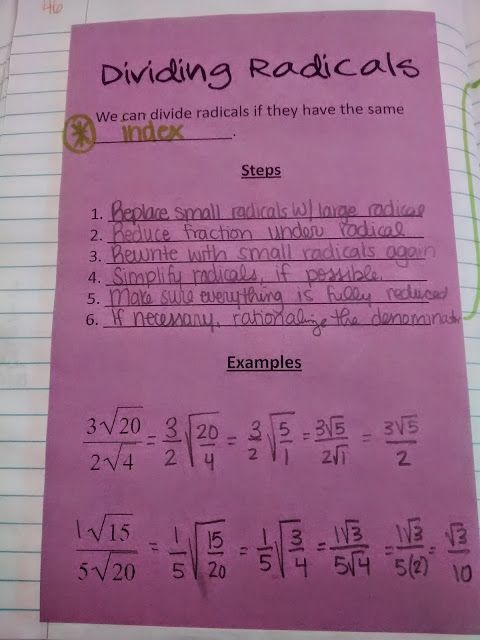 46
Dividing Radicals
We can divide radicals if they have the same
* index.
Steps
1. Replace small radicals w/ large radical
2. Reduce fraction under radical
3. Rewrite with small radicals again
4. Simplify radicals, if possible.
5. Make sure everything is fully reduced
6. If necessary, rationalize the denominator
Examples
3√20/2√4 = 3/2 √(20/4) = 3/2 √(5/1) = 3√5/2√1 = 3√5/2
1√15/5√20 = 1/5 √(15/20) = 1/5 √(3/4) = 1√3/5√4 = 1√3/5(2) = √3/10